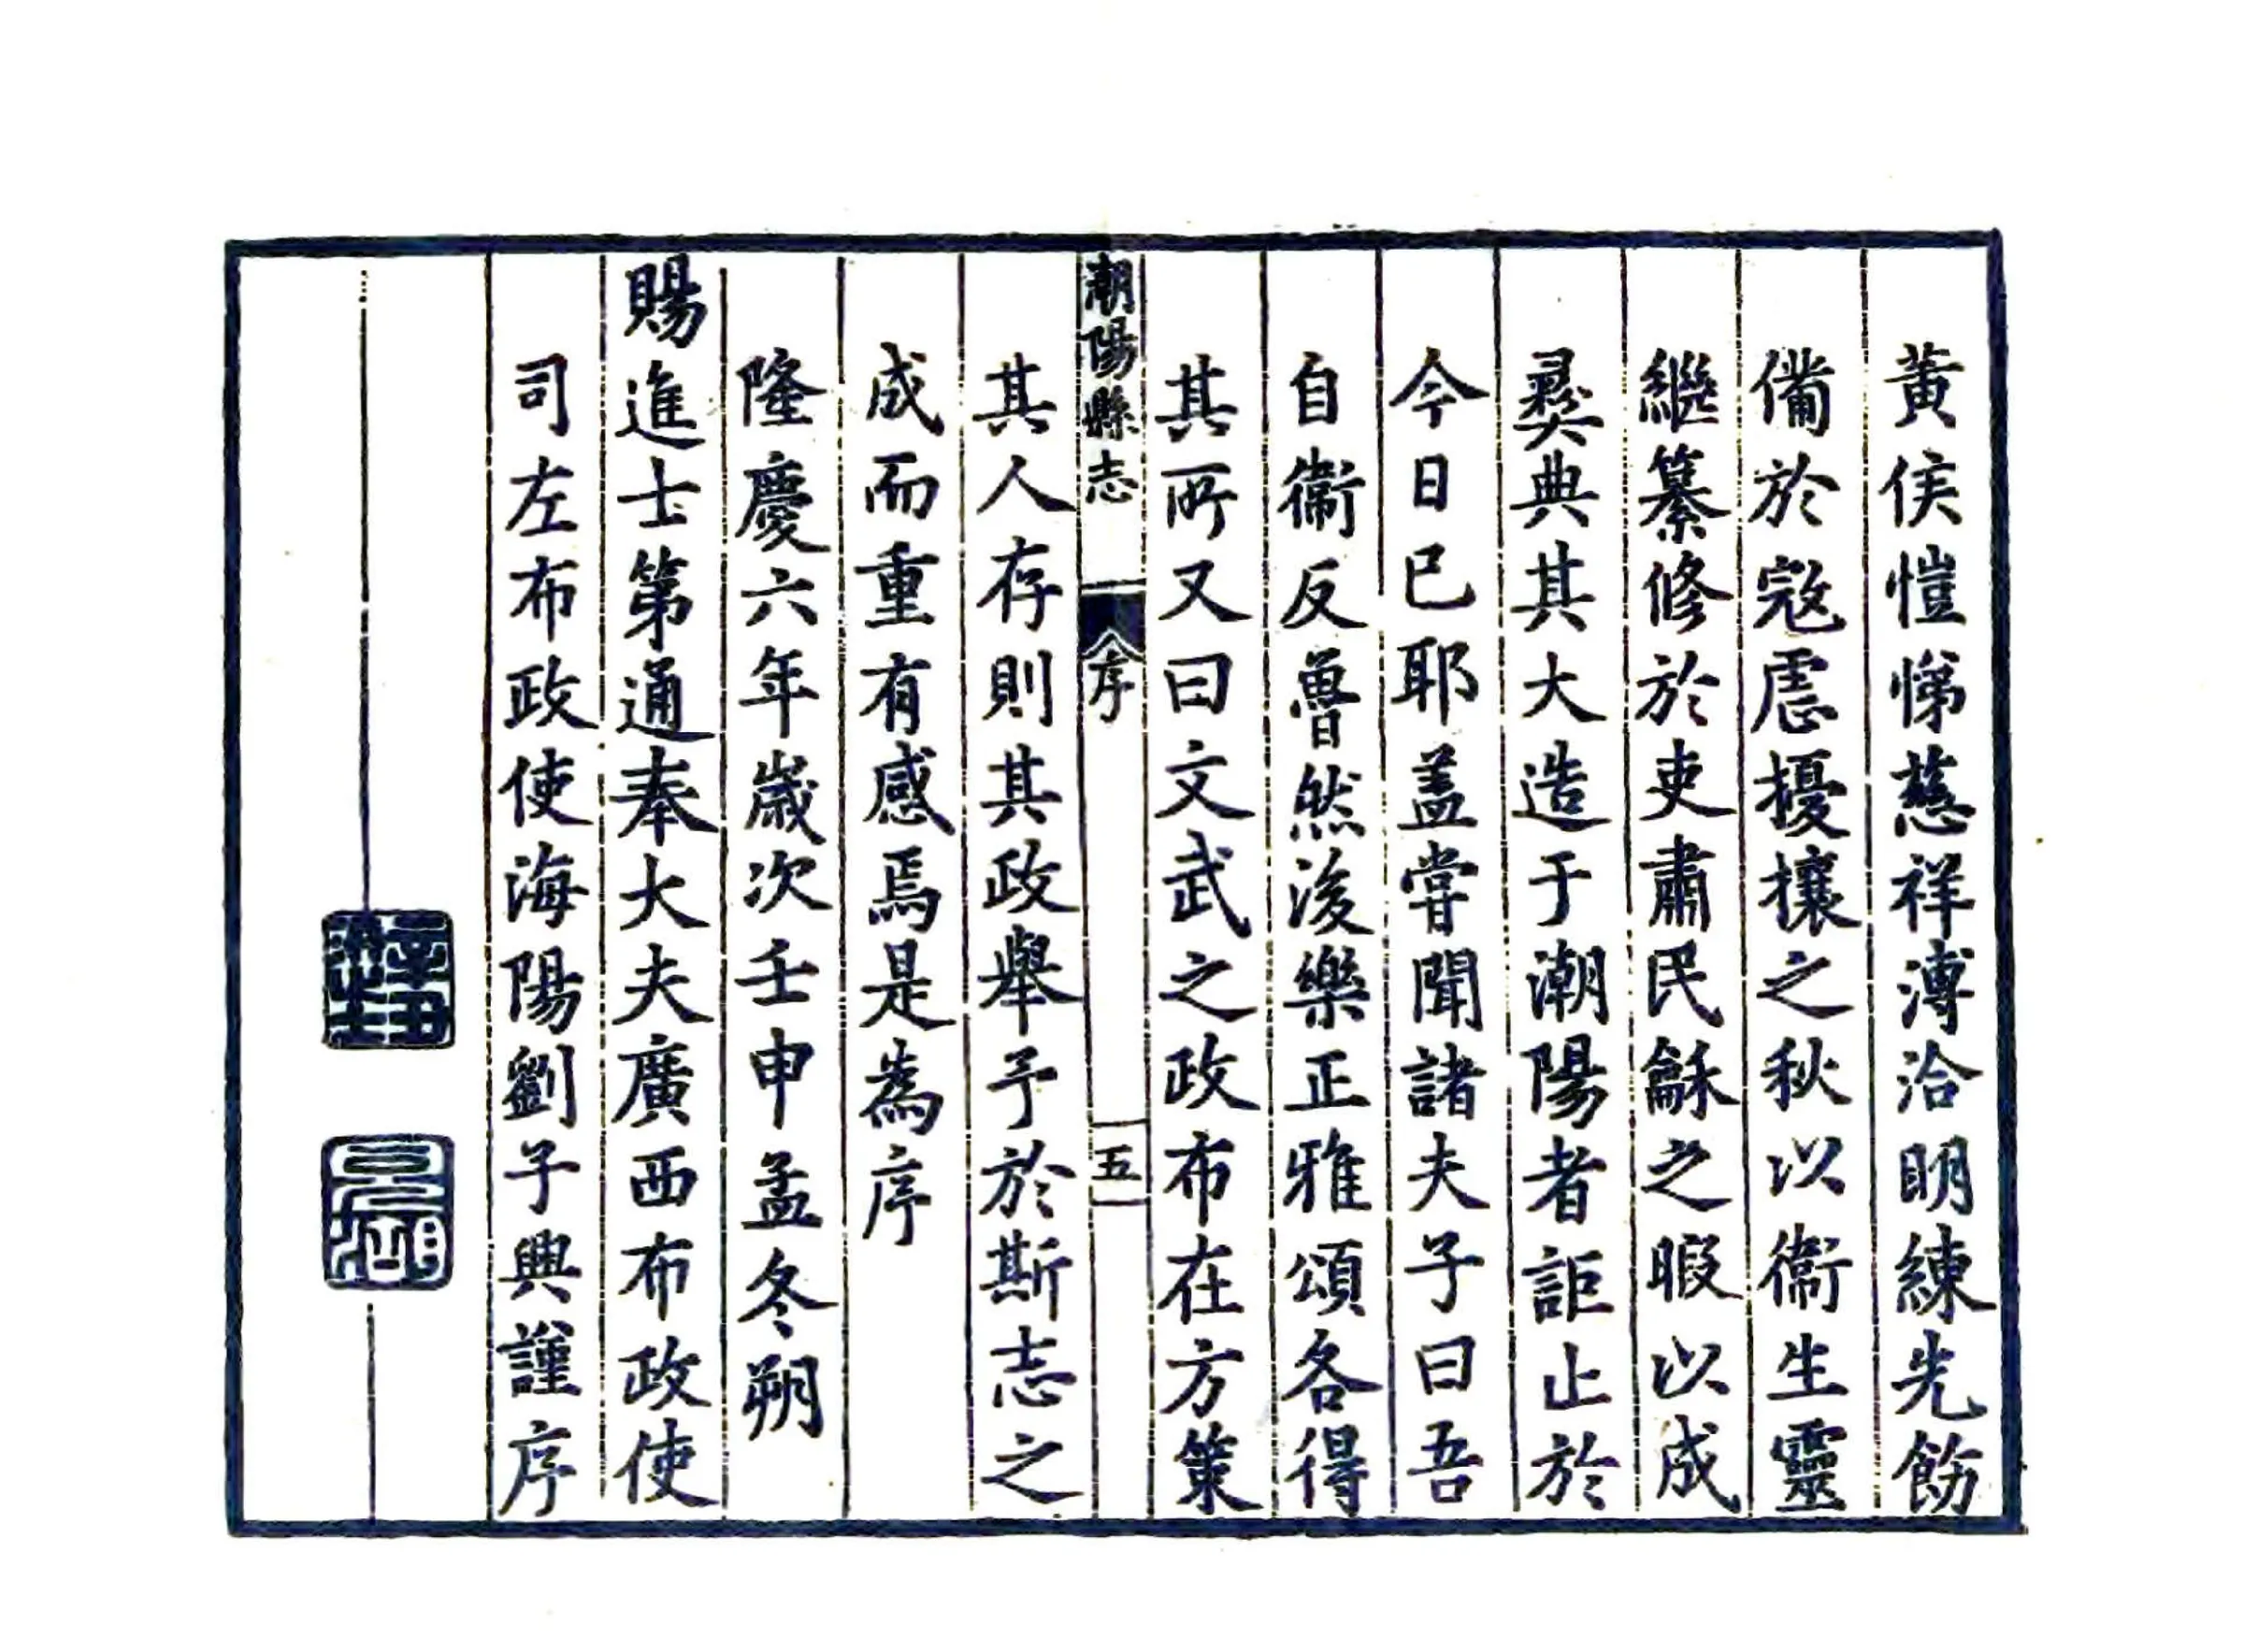 黃侯愷悌慈祥溥洽明練先飭
備於寇虐擾攘之秋以衞生靈
繼纂修於吏肅民龢之暇以成
彞典其大造于潮陽者詎止於
今日已耶葢嘗聞諸夫子曰吾
自衞反魯然後樂正雅頌各得
其所又曰文武之政布在方策
潮陽縣志
序
五
其人存則其政舉予於斯志之
成而重有感焉是為序
隆慶六年歲次壬申孟冬朔
賜進士第通奉大夫廣西布政使
司左布政使海陽劉子興謹序